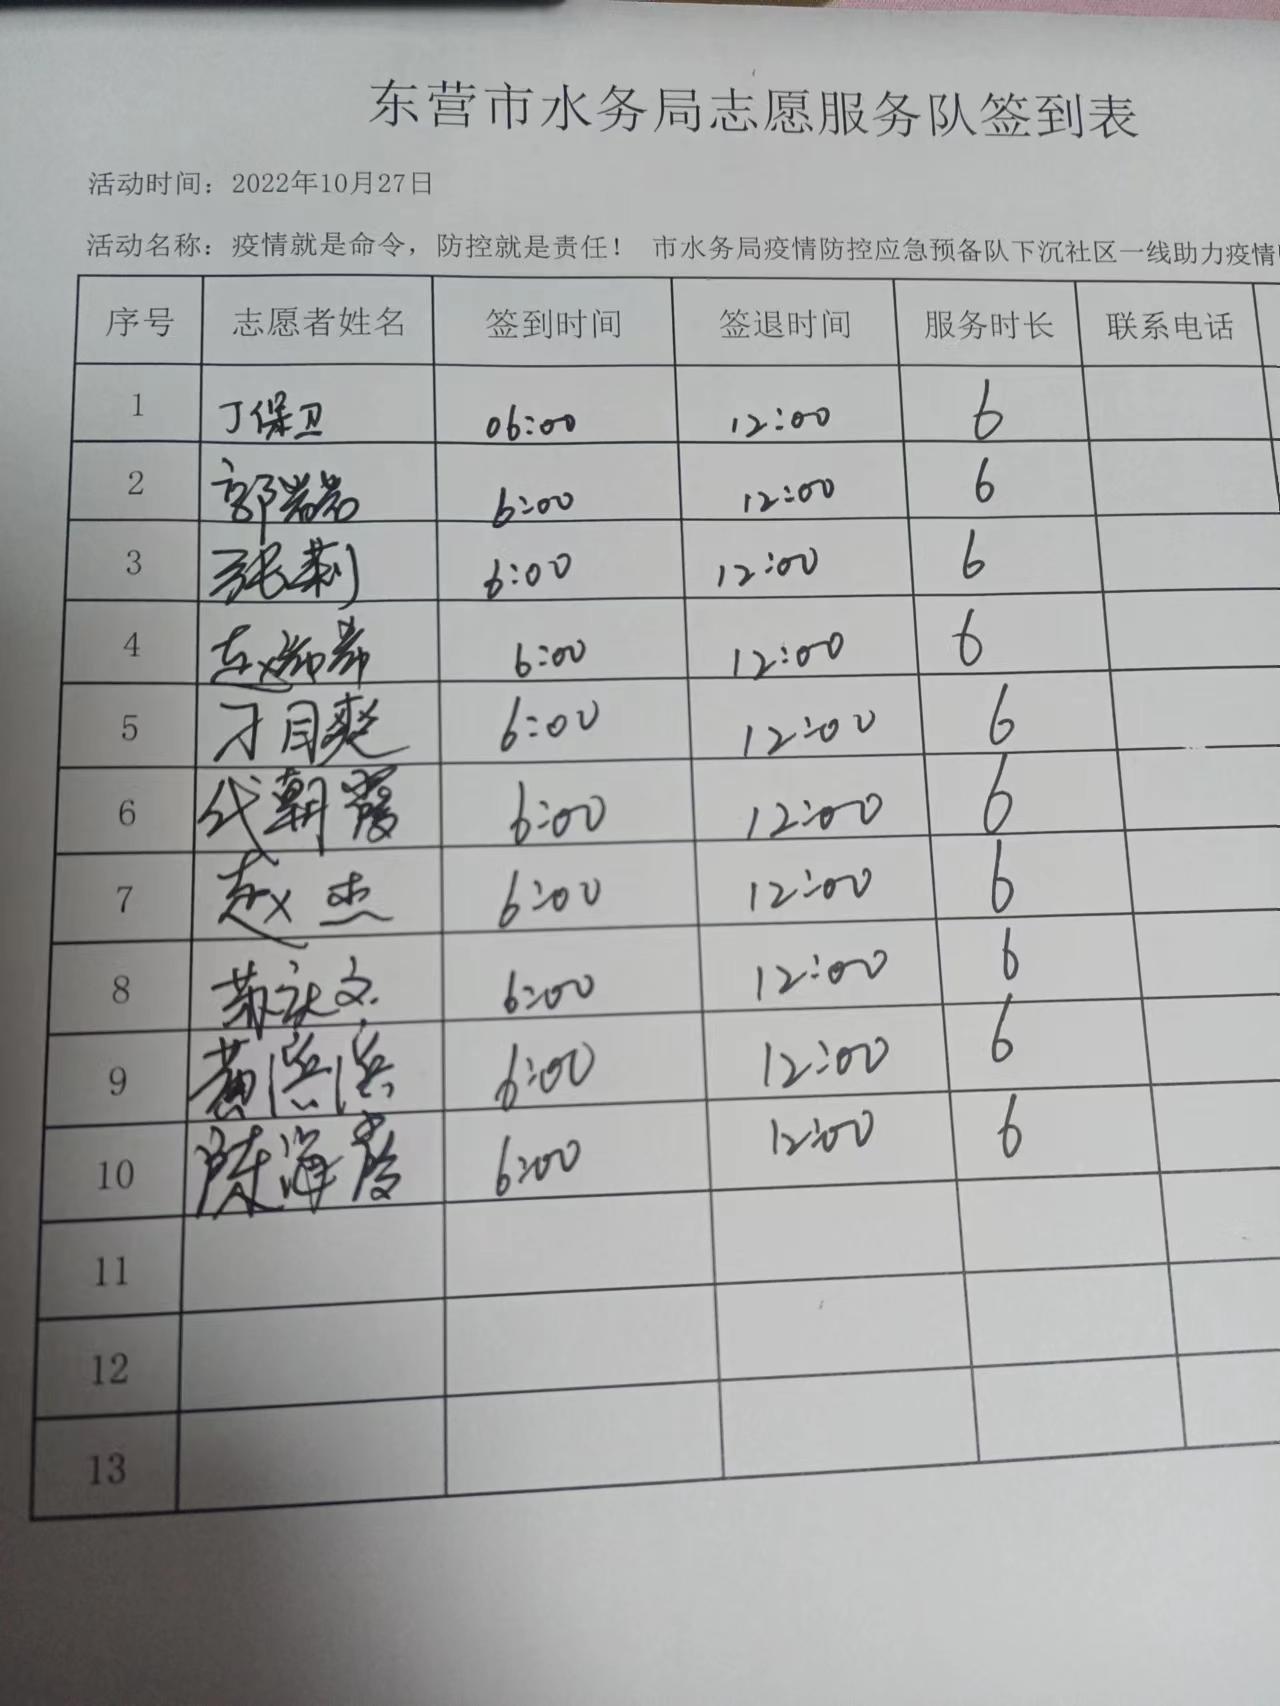 东营市水务局志愿服务队签到表
活动时间：2022年10月27日
活动名称：疫情就是命令，防控就是责任！ 市水务局疫情防控应急预备队下沉社区一线助力疫情
序号 志愿者姓名 签到时间 签退时间 服务时长 联系电话
1 丁保卫 06:00 12:00 6
2 郭岩岩 6:00 12:00 6
3 张莉 6:00 12:00 6
4 赵 6:00 12:00 6
5 刁月爽 6:00 12:00 6
6 代朝霞 6:00 12:00 6
7 赵杰 6:00 12:00 6
8 文 6:00 12:00 6
9 黄滨滨 6:00 12:00 6
10 陈海霞 6:00 12:00 6
11
12
13